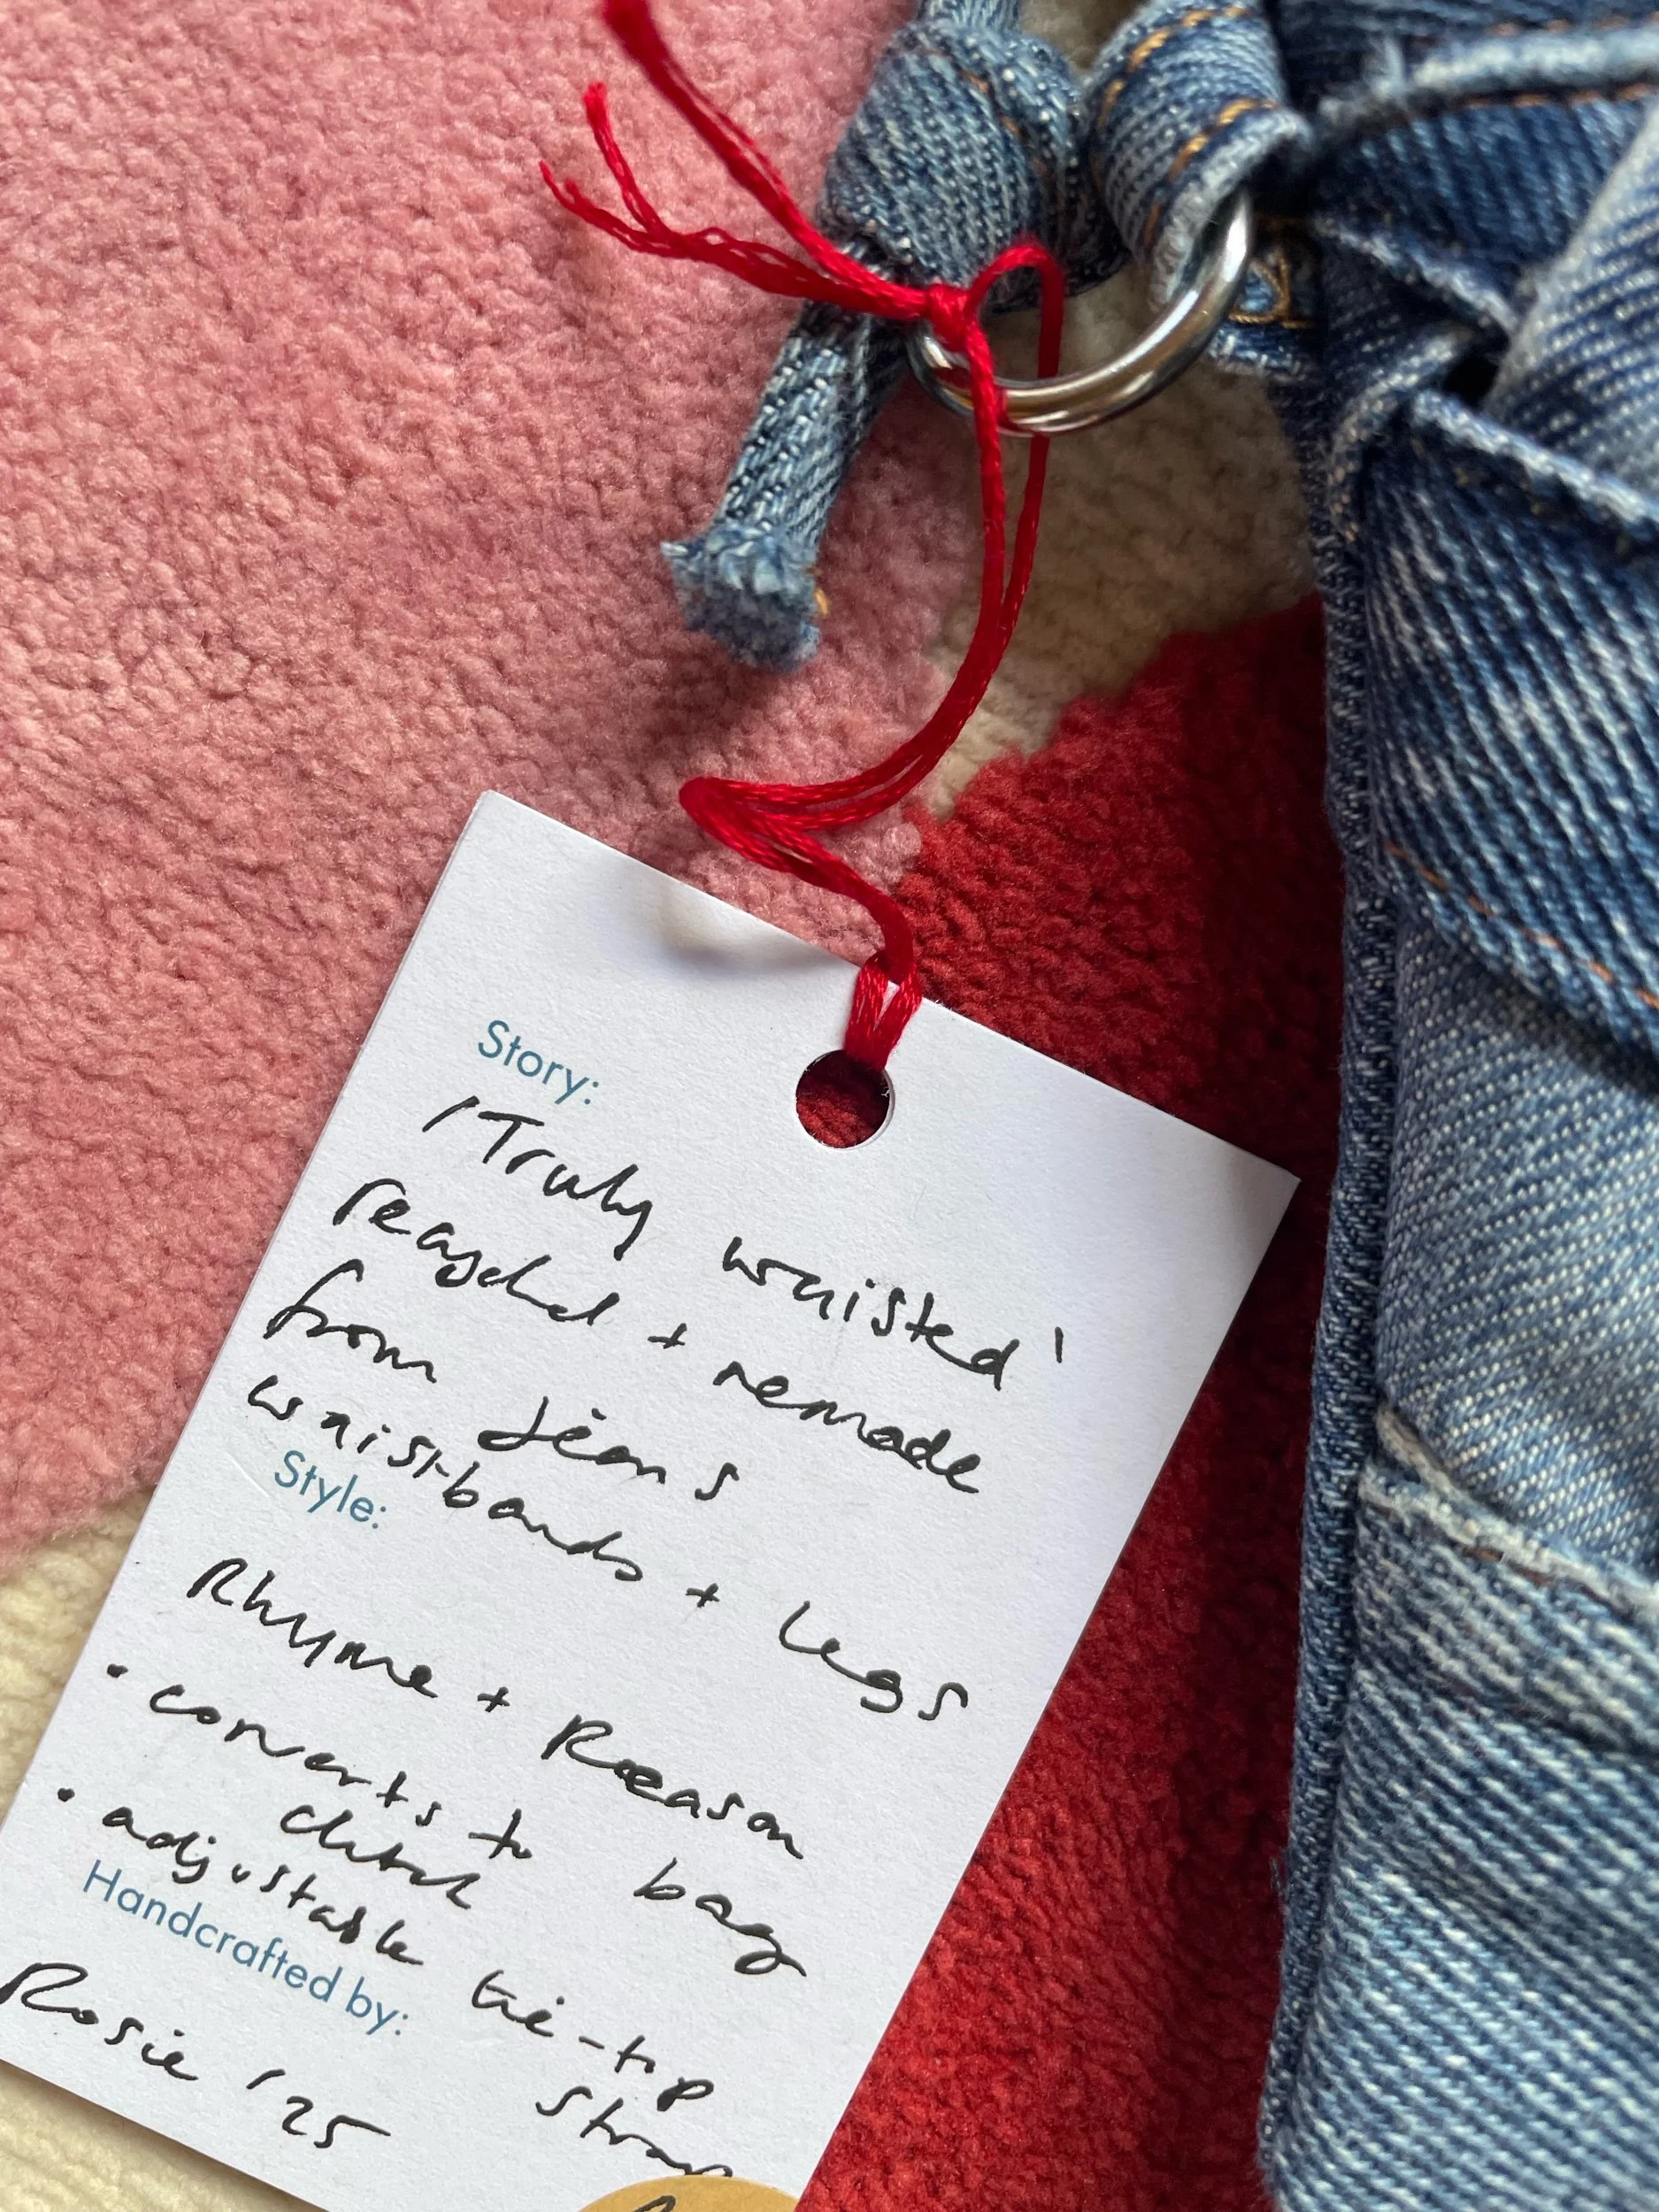 Story:
'Truly waisted'
recycled + remade
from jeans
waistbands + legs
Style:
Rhyme + Reason
• converts to bag
clutch
• adjustable tie-top
strap
Handcrafted by:
Rosie '25